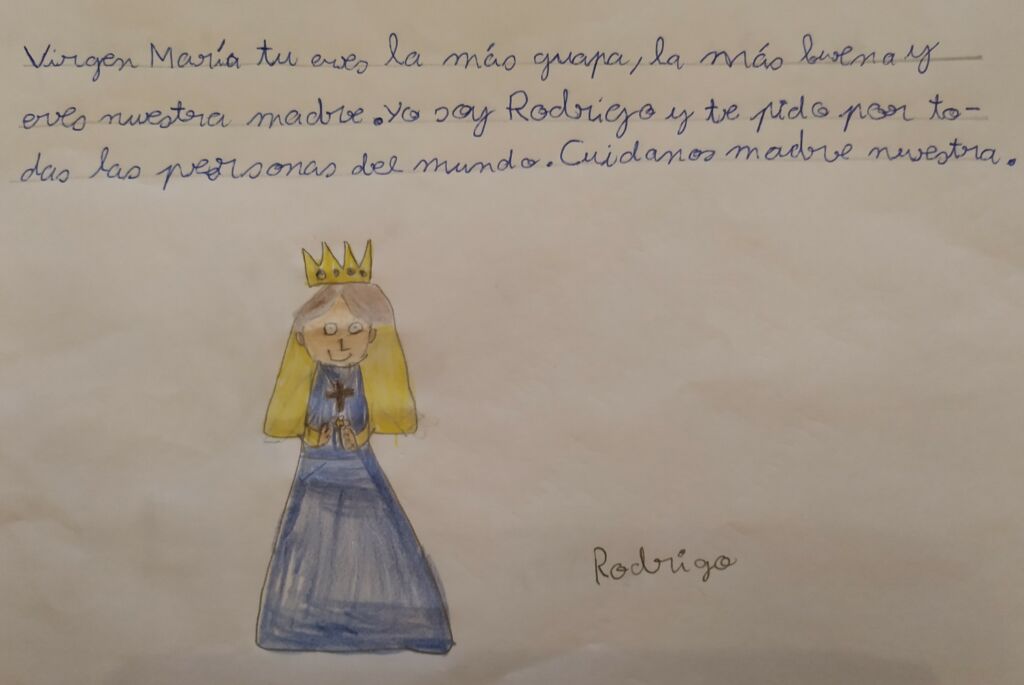 Virgen María tu eres la más guapa, la más buena y
eres nuestra madre. Yo soy Rodrigo y te pido por to-
das las personas del mundo. Cuidanos madre nuestra.
Rodrigo